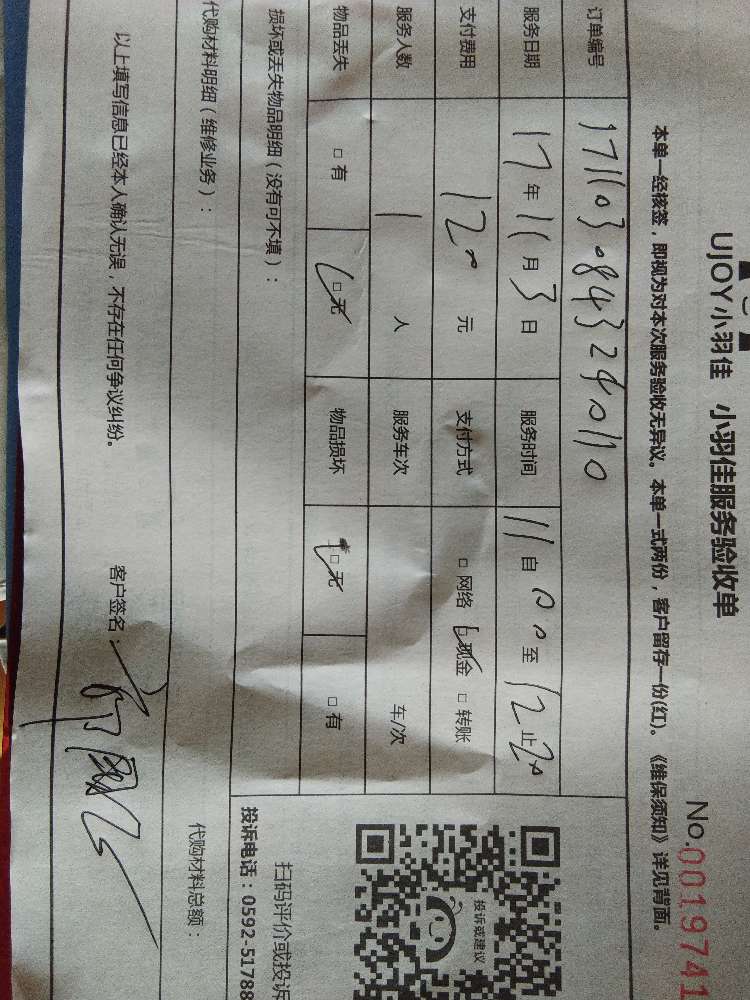 UJOY小羽佳 小羽佳服务验收单
No.0019741
本单一经核签，即视为对本次服务验收无异议。本单一式两份，客户留存一份(红)。《维保须知》详见背面。
订单编号
服务日期 17年11月3日 服务时间 11自00至12止20
支付费用 120元 支付方式 □网络 □现金 □转账
服务人数 1人 服务车次 车/次
物品丢失 □有 □无 物品损坏 □无 □有
损坏或丢失物品明细（没有可不填）：
代购材料明细（维修业务）：
代购材料总额：
投诉或建议
扫码评价或投诉
投诉电话：0592-51788
以上填写信息已经本人确认无误，不存在任何争议纠纷。
客户签名：